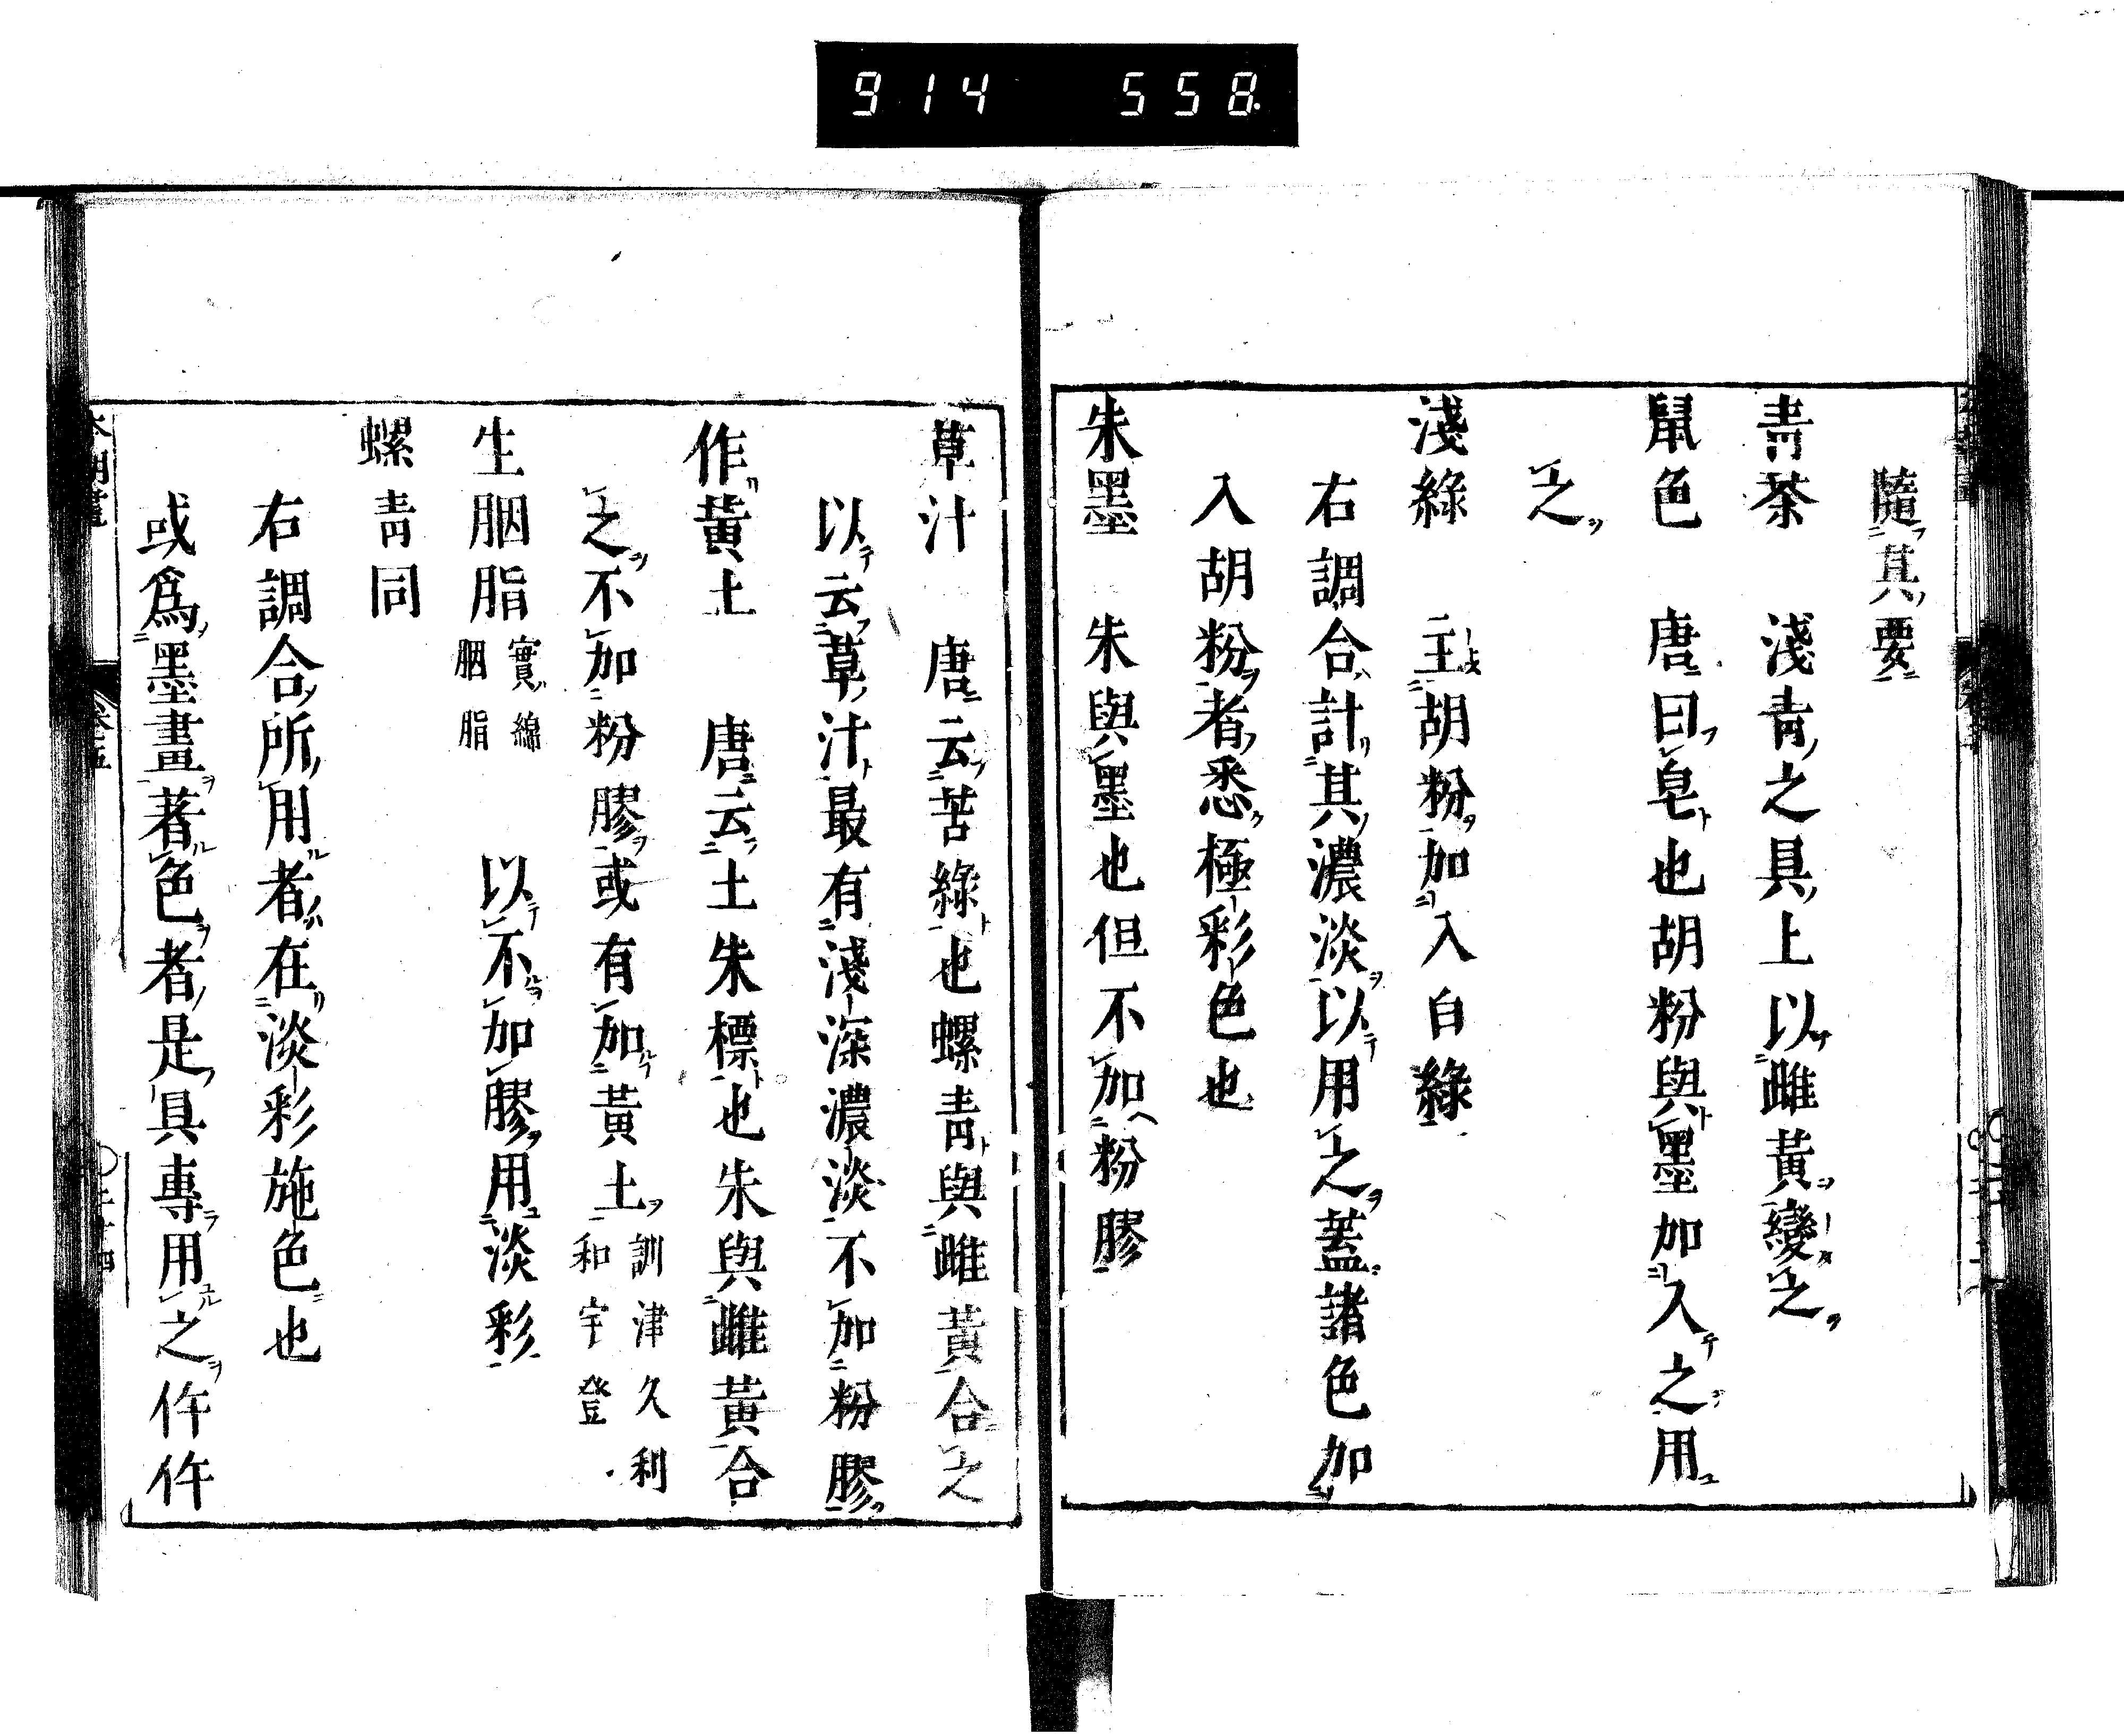 914 558
隨其要
靑茶 淺靑之具上以雌黃變之
鼠色 唐曰皂也胡粉與墨加入之用
之
淺綠 主胡粉加入白綠
右調合計其濃淡以用之蓋諸色加
入胡粉者悉極彩色也
朱墨 朱與墨也但不加粉膠
草汁 唐云苦綠也螺靑與雌黃合之
以云草汁最有淺深濃淡不加粉膠
作黃土 唐云土朱標也朱與雌黃合
之不加粉膠或有加黃土訓津久利和宇登
生胭脂實綿胭脂 以不加膠用淡彩
螺靑同
右調合所用者在淡彩施色也
或爲墨畫著色者是具專用之件件